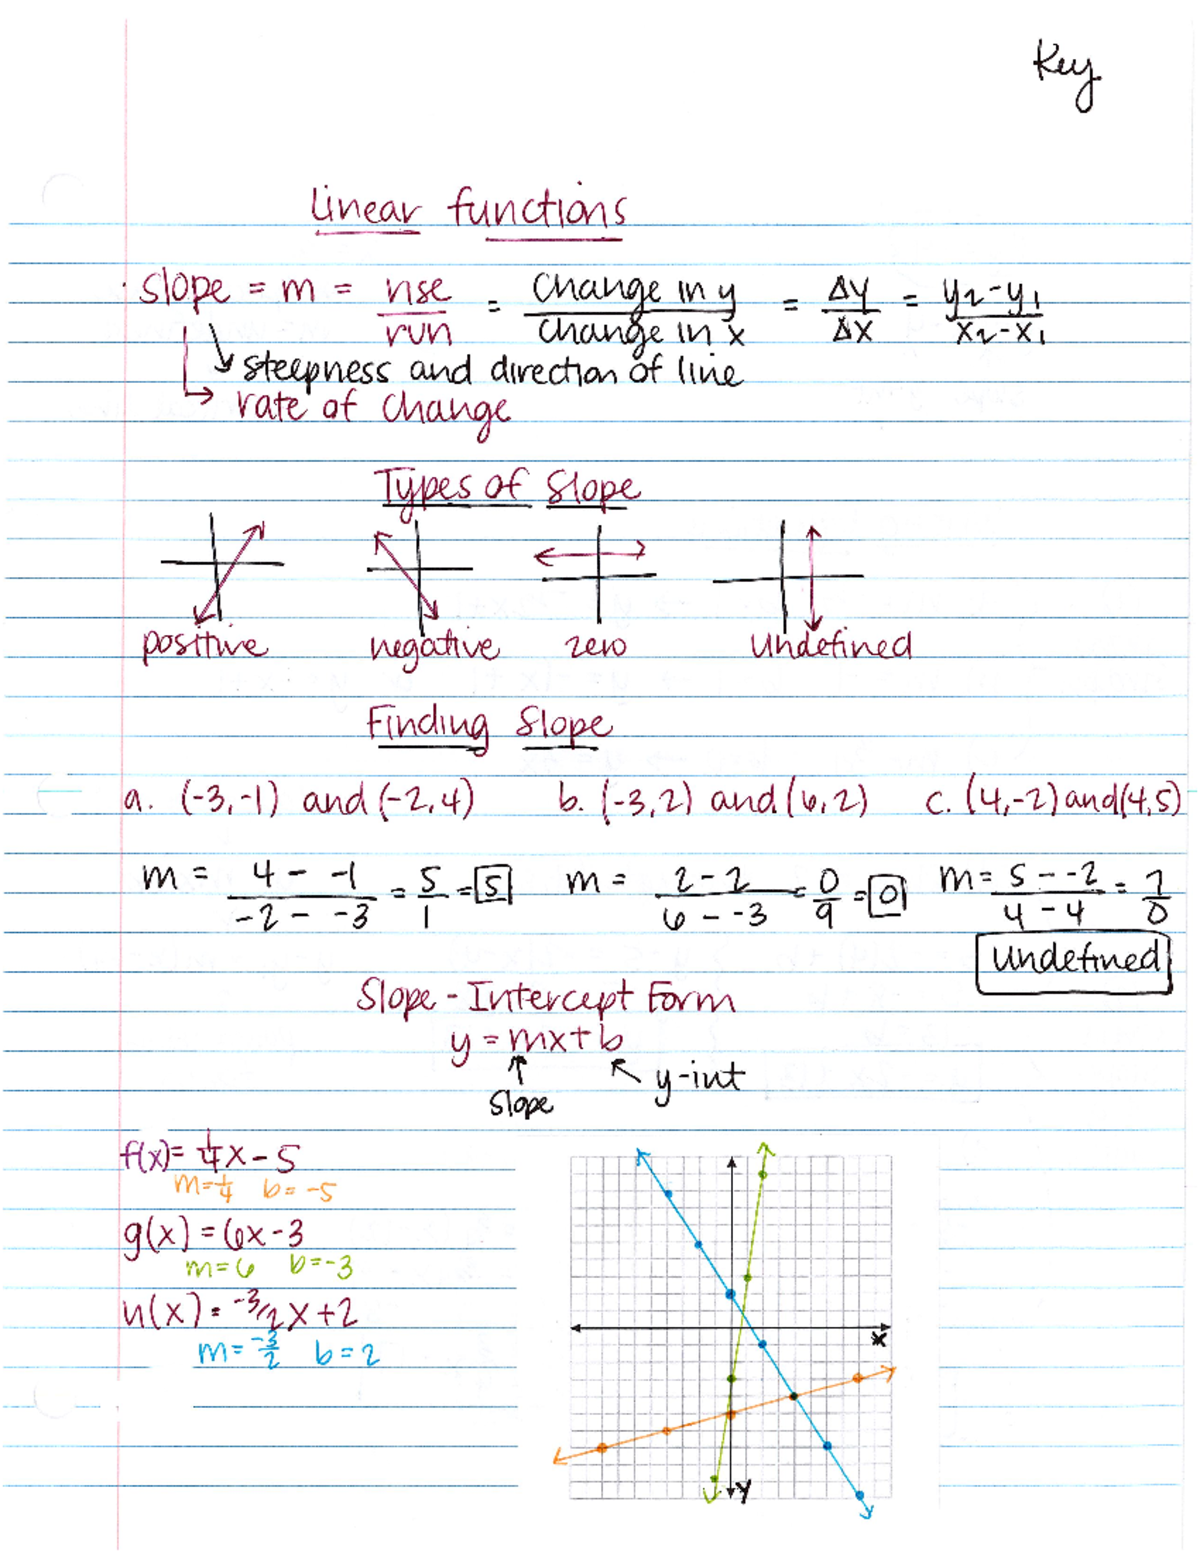 Key
Linear functions
slope = m = rise/run = change in y/change in x = Δy/Δx = y₂-y₁/x₂-x₁
steepness and direction of line
rate of change
Types of Slope
positive negative zero undefined
Finding Slope
a. (-3,-1) and (-2,4) b. (-3,2) and (6,2) c. (4,-2) and (4,5)
m = 4 - -1/-2 - -3 = 5/1 = 5 m = 2-2/6 - -3 = 0/9 = 0 m = 5 - -2/4 - 4 = 7/0
undefined
Slope - Intercept Form
y = mx + b
slope y-int
f(x) = 1/4x - 5
m = 1/4 b = -5
g(x) = 6x - 3
m = 6 b = -3
h(x) = -3/2x + 2
m = -3/2 b = 2
x
y